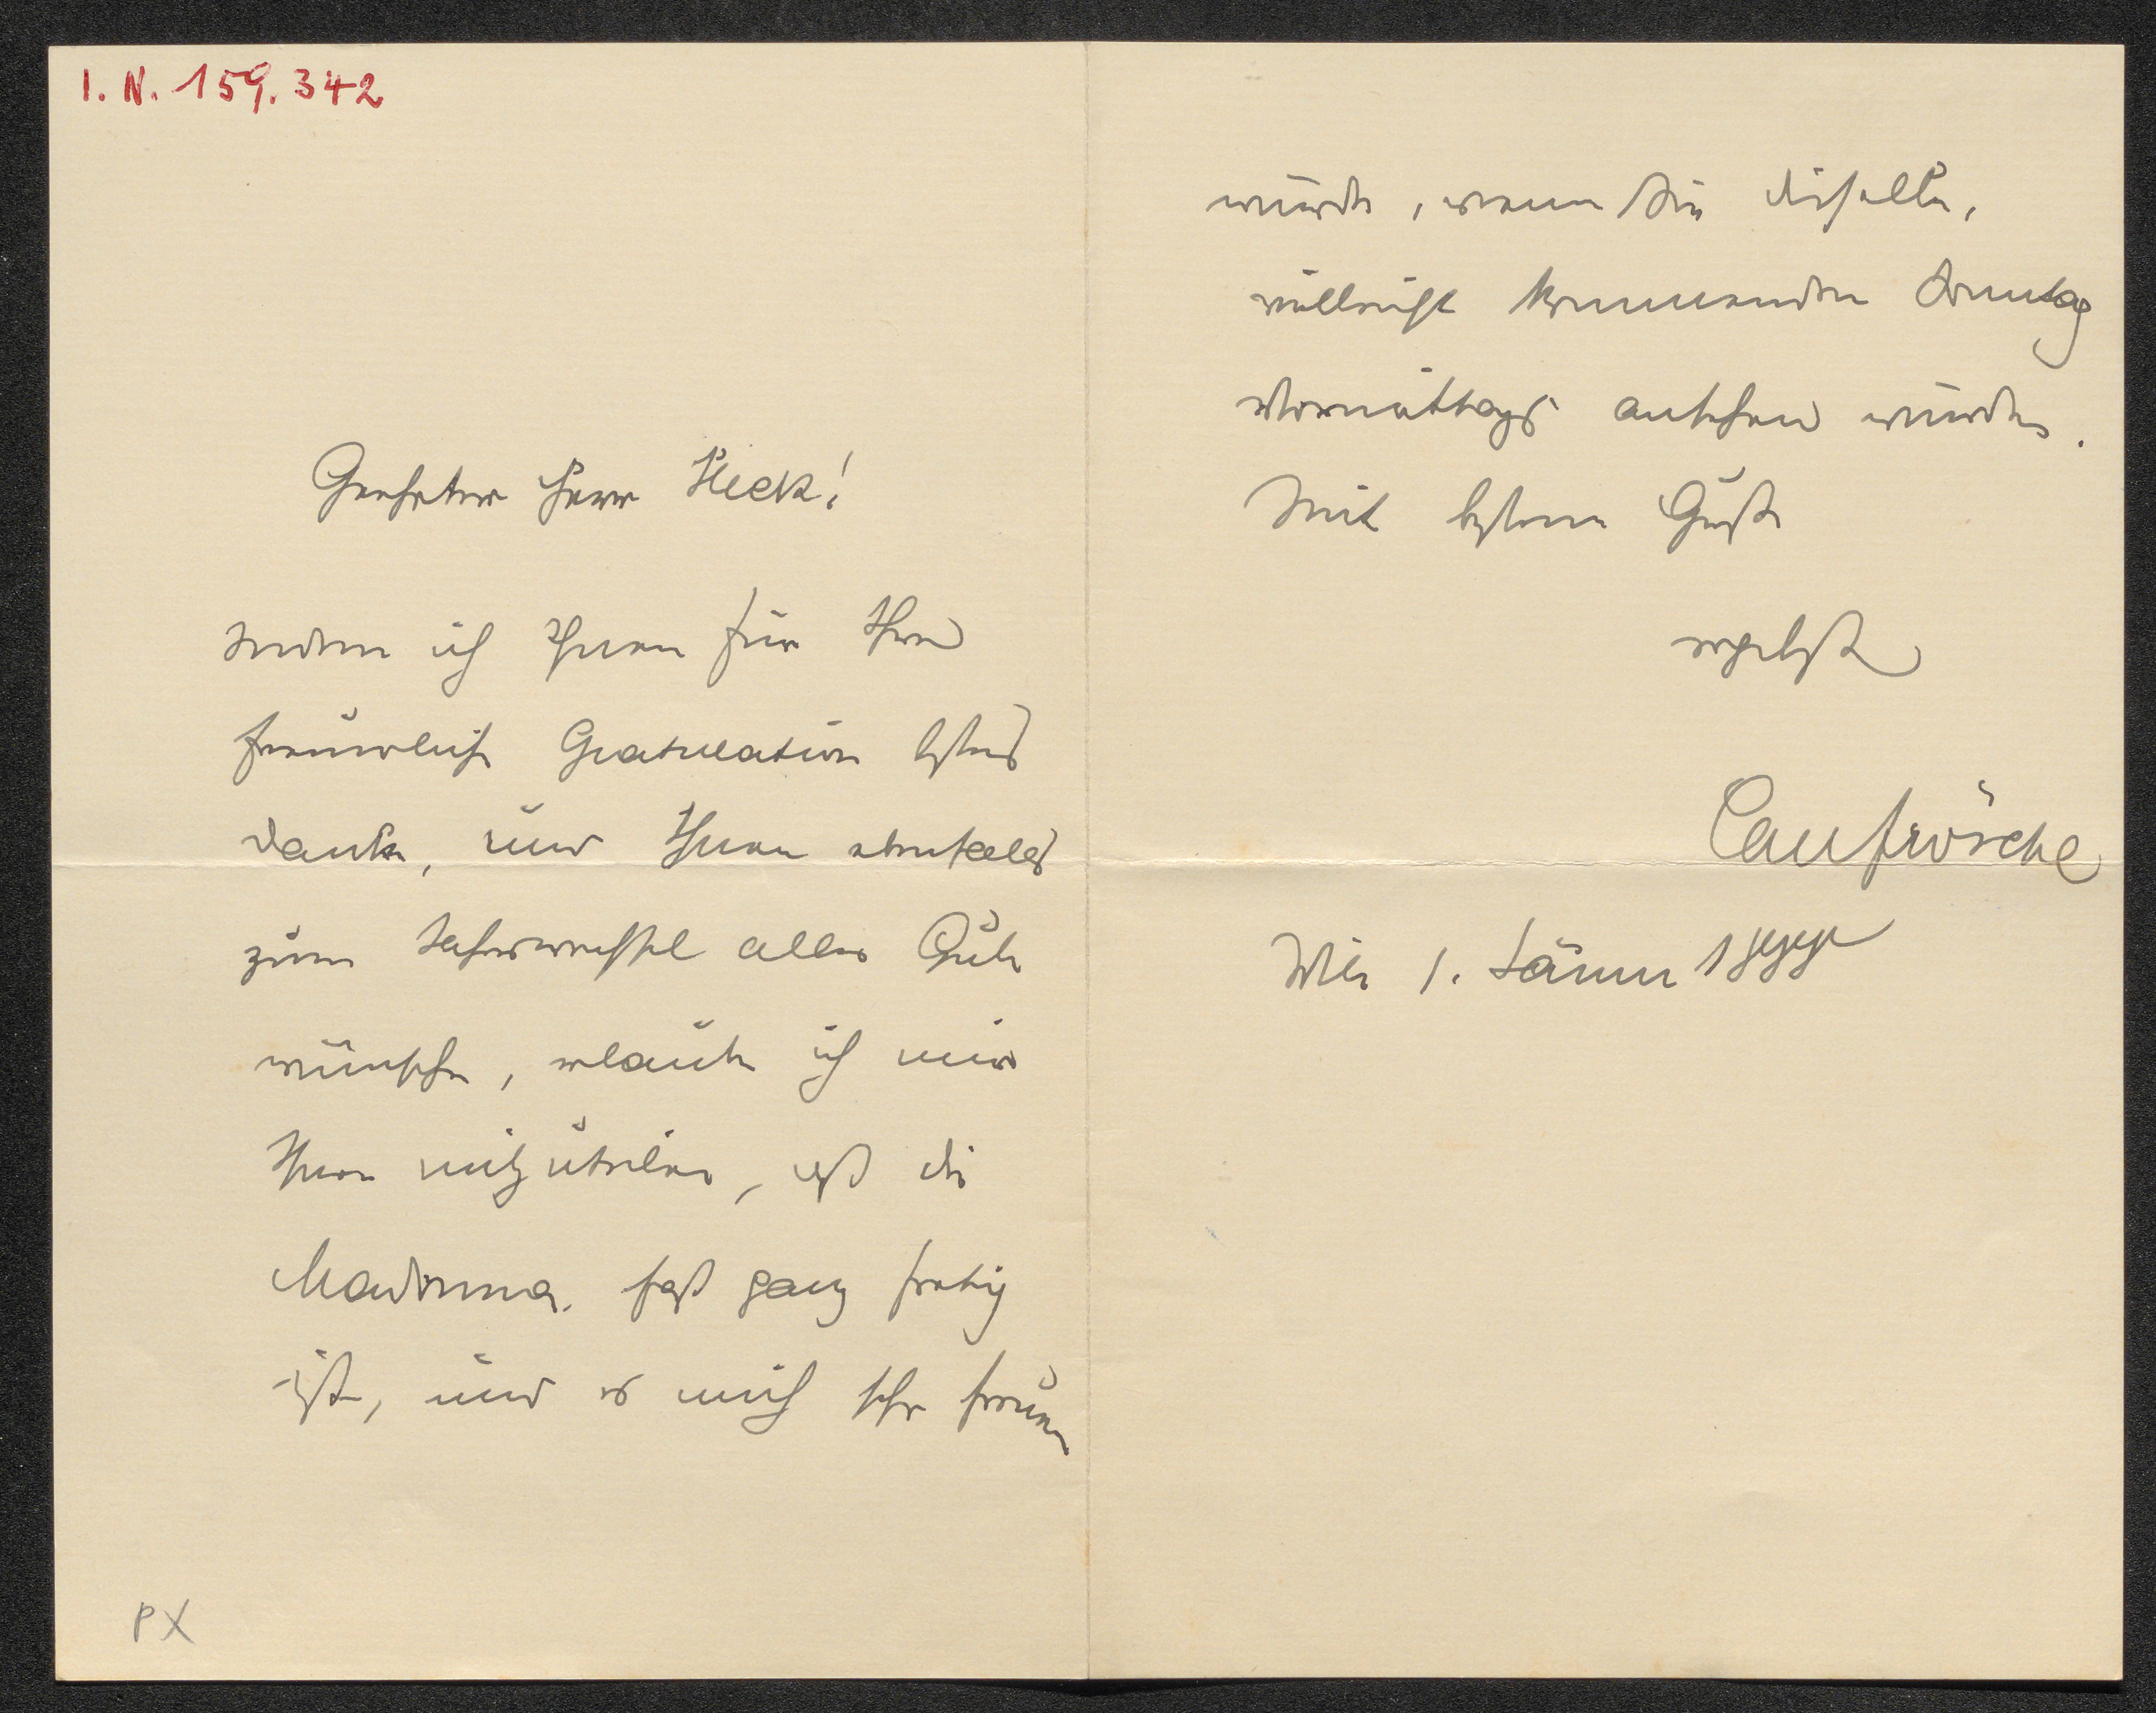 I. N. 159.342
Geehrter Herr Heck!
Indem ich Ihnen für Ihre
freundliche Gratulation bestens
danke, und Ihnen ebenfalls
zum Jahreswechsel alles Gute
wünsche, erlaube ich mir
Ihnen mitzuteilen, daß die
Madonna fast ganz fertig
ist, und es mich sehr freuen
PX
würde, wenn Sie dieselbe,
vielleicht kommenden Sonntag
Vormittags ansehen würden.
Mit bestem Gruße
ergebenst
Wien 1. Jänner